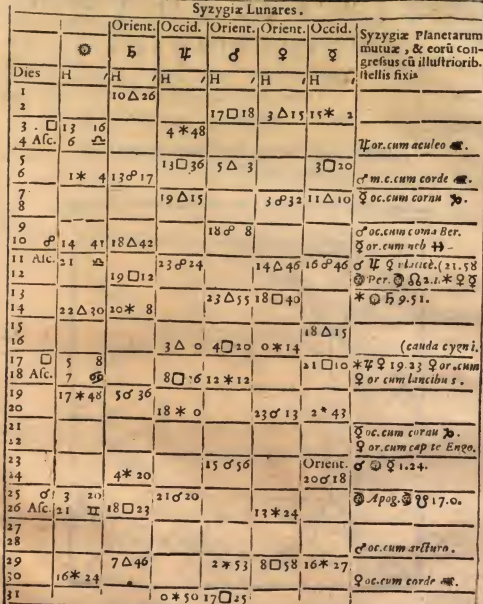 Syzygiæ Lunares.
Orient. Occid. Orient. Orient. Occid. Syzygiæ Planetarum
☉ ♄ ♃ ♂ ♀ ☿ mutuæ, & eorũ con-
gressus cũ illustriorib.
Dies H ′ H ′ H ′ H ′ H ′ H ′ stellis fixis
1 10 △ 26
2 17 □ 18 3 △ 15 15 * 2
3 . □ 13 16 4 * 48
4 Asc. 6 ♎ ♃ or. cum aculeo
5 13 □ 36 5 △ 3 3 □ 20
6 1 * 4 13 ☍ 17 ♂ m.c. cum corde
7 19 △ 15 3 ☍ 32 11 △ 10 ☿ oc. cum cornu ♑.
8
9 18 ☍ 8 ♂ oc. cum coma Ber.
10 ☍ 14 41 18 △ 42 ☿ or. cum neb ♓ -
11 Asc. 21 ♎ 23 ☍ 24 14 △ 46 16 ☍ 46 ♂ ♃ ☿ (21.58
12 19 □ 12 Per. * ♀ ☿
13 23 △ 55 18 □ 40 * ☉ ♄ 9.51.
14 22 △ 30 20 * 8
15 18 △ 15
16 3 △ 0 4 □ 20 0 * 14 (cauda cygni.
17 □ 5 8 21 □ 10 * ♃ ♀ 19.23 ♀ or. cum
18 Asc. 7 ♋ 8 □ 16 12 * 12 ♀ or cum lancibus.
19 17 * 48 5 ☌ 36
20 18 * 0 23 ☌ 13 2 * 43
21 ☿ oc. cum cornu ♑.
22 ♀ or. cum cap te Engo.
23 15 ☌ 56 Orient. ☌ ☉ ☿ 1.24.
24 4 * 20 20 ☌ 18
25 ☌ 3 20 21 ☌ 20 Apog. ☋ 17.0.
26 Asc. 21 ♊ 18 □ 23 13 * 24
27
28 ♂ oc. cum arcturo.
29 7 △ 46 2 * 53 8 □ 58 16 * 27
30 16 * 24 ♀ oc. cum corde
31 0 * 50 17 □ 25